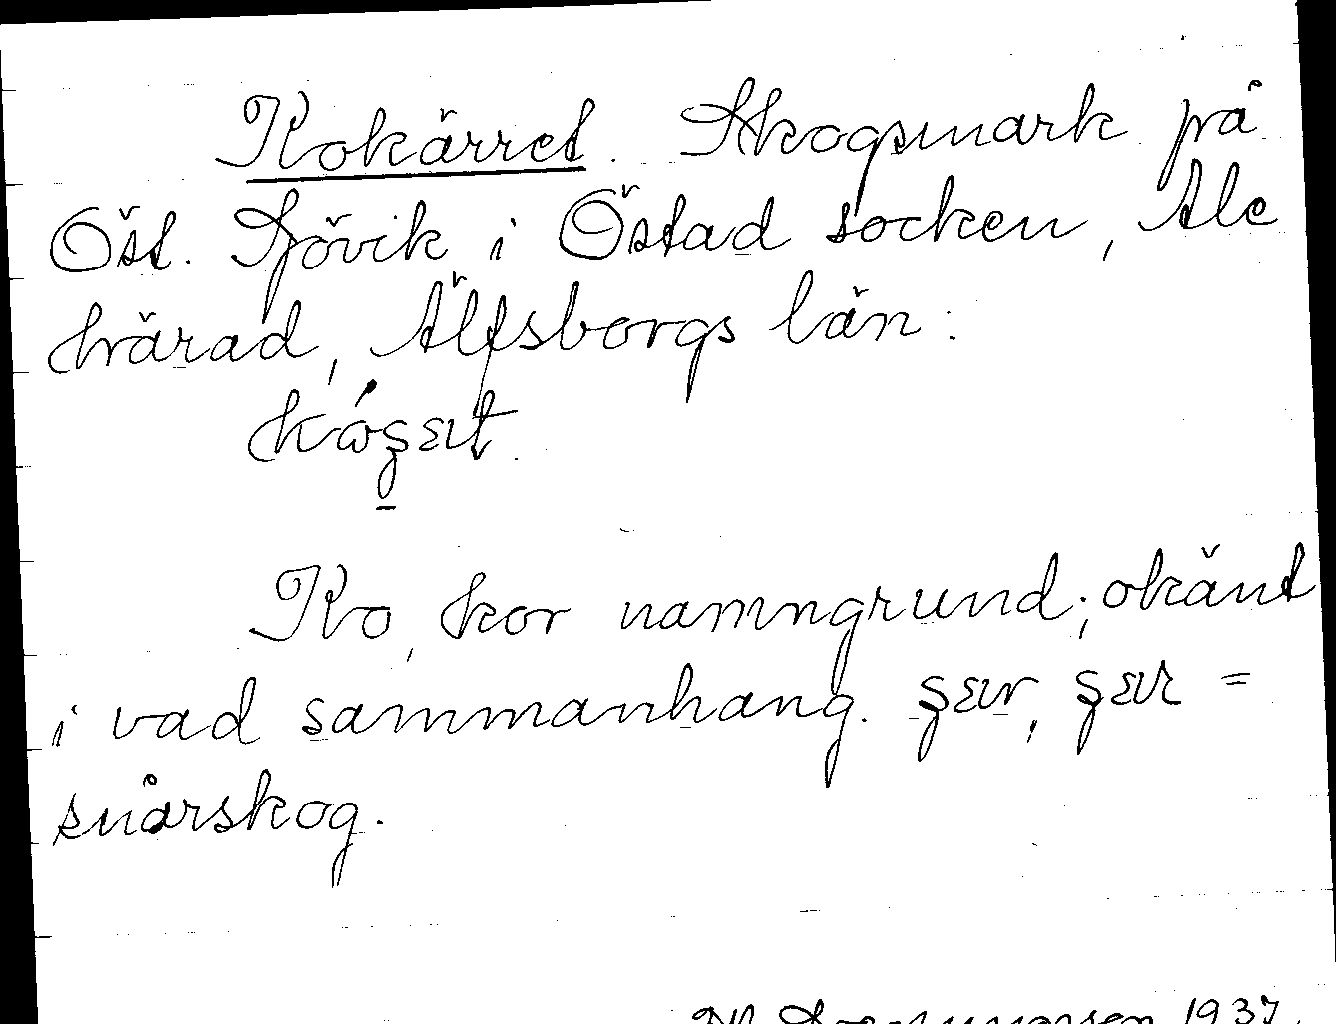 Kokärret. Skogsmark på
Öst. Sjövik i Östad socken, Ale
härad, Älfsborgs län:
Ko, kor namngrund; okänt
i vad sammanhang. =
snårskog.
1937.